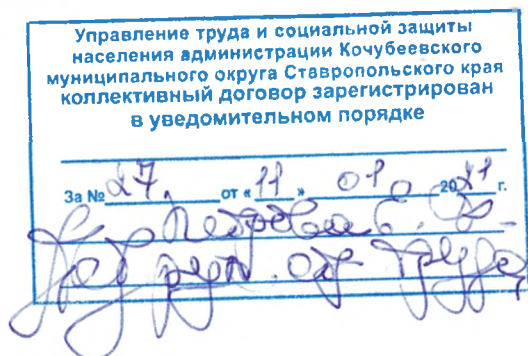 Управление труда и социальной защиты
населения администрации Кочубеевского
муниципального округа Ставропольского края
коллективный договор зарегистрирован
в уведомительном порядке
За № 27. от « 11 » 01. 2021 г.
Петрова Е.
отд труда